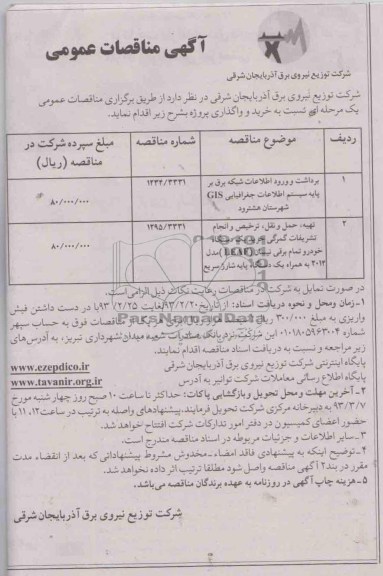 آگهی مناقصات عمومی
شرکت توزیع نیروی برق آذربایجان شرقی
شرکت توزیع نیروی برق آذربایجان شرقی در نظر دارد از طریق برگزاری مناقصات عمومی
یک مرحله ای نسبت به خرید و واگذاری پروژه بشرح زیر اقدام نماید.
ردیف موضوع مناقصه شماره مناقصه مبلغ سپرده شرکت در مناقصه (ریال)
۱ برداشت و ورود اطلاعات شبکه برق بر ۱۳۳۴/۳۳۳۱ ۸۰/۰۰۰/۰۰۰
پایه سیستم اطلاعات جغرافیایی GIS
شهرستان هشترود
۲ تهیه، حمل و نقل، ترخیص و انجام ۱۲۹۵/۳۳۳۱ ۸۰/۰۰۰/۰۰۰
تشریفات گمرکی
خودرو تمام برقی نیسان (مدل
۲۰۱۳ به همراه یک دستگاه پایه شارژ سریع
در صورت تمایل به شرکت در مناقصات رعایت نکات ذیل الزامی است.
۱-زمان ومحل و نحوه دریافت اسناد: از تاریخ ۹۳/۲/۲۰ لغایت ۹۳/۲/۲۵ با در دست داشتن فیش
واریزی به مبلغ ۳۰۰/۰۰۰ هر یک از مناقصات فوق به حساب سپهر
شماره ۰۱۰۱۸۰۵۹۶۳۰۰۴ این شرکت نزد بانک صادرات شعبه میدان شهرداری تبریز، به آدرس‌های
زیر مراجعه و نسبت به دریافت اسناد مناقصه اقدام نمایند.
پایگاه اینترنتی شرکت توزیع نیروی برق آذربایجان شرقی www.ezepdico.ir
پایگاه اطلاع رسانی معاملات شرکت توانیر به آدرس www.tavanir.org.ir
۲-آخرین مهلت و محل تحویل و بازگشایی پاکات: حداکثر تا ساعت ۱۰ صبح روز چهار شنبه مورخ
۹۳/۳/۷ به دبیرخانه مرکزی شرکت تحویل فرمایند. پیشنهادهای واصله به ترتیب در ساعت ۱۲، ۱۱ با
حضور اعضای کمیسیون در دفتر امور تدارکات شرکت افتتاح خواهد شد.
۳-سایر اطلاعات و جزئیات مربوطه در اسناد مناقصه مندرج است.
۴-توضیح اینکه به پیشنهادی فاقد امضاء-مخدوش مشروط پیشنهاداتی که بعد از انقضاء مدت
مقرر در بند۲ آگهی مناقصه واصل شود مطلقا ترتیب اثر داده نخواهد شد.
۵-هزینه چاپ آگهی در روزنامه به عهده برندگان مناقصه می‌باشد.
شرکت توزیع نیروی برق آذربایجان شرقی